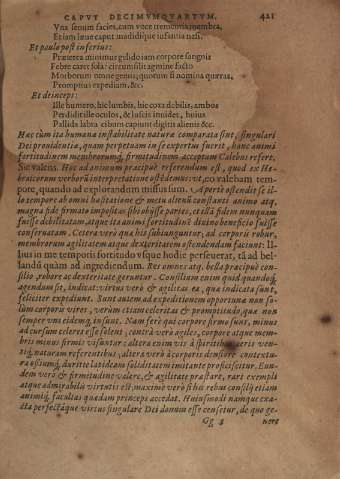 CAPVT DECIMVMQVARTVM. 421
Vna senum facies, cum voce trementia membra,
Et iam leue caput madidique infantia nasi.
Et paulo post inferius:
Præterea minimus gelido iam corpore sanguis
Febre calet sola: circumsilit agmine facto
Morborum omne genus, quorum si nomina quæras,
Promptius expediam, &c.
Et deinceps:
Ille humero, hic lumbis, hic coxa debilis, ambos
Perdidit ille oculos, & luscis inuidet, huius
Pallida labra cibum capiunt digitis alienis &c.
Hæc cùm ita humanæ instabilitate naturæ comparata sint, singulari
Dei prouidentiæ, quam perpetuam in se expertus fuerit, hanc animi
fortitudinem membrorumq́; firmitudinem acceptam Calebus refert.
Sic valens. Hoc ad animum præcipuè referendum est, quod ex He-
braicorum verborum interpretatione ostedemus: vt, eo valebam tem-
pore, quando ad explorandum missus sum. Apertè ostendit se il-
lo tempore ab omni hæsitatione & metu alienũ constanti animo atq.
magna fide firmato impositas sibi obijsse partes, et illâ fidem nunquam
fuisse debilitatam, atque ita animi fortitudinẽ diuino beneficio fuisse
conseruatam. Cetera verò quæ his subiunguntur, ad corporis robur,
membrorum agilitatem atque dexteritatem ostendendam faciunt: Il-
lius in me temporis fortitudo vsque hodie perseuerat, tã ad bel-
landũ quàm ad ingrediendum. Res omnes atq. bella præcipuè con-
silio, robore ac dexteritate geruntur. Consilium enim quid quandoq́;
agendum sit, indicat: virtus verò & agilitas ea, quæ indicata sunt,
feliciter expediunt. Sunt autem ad expeditionem opportunæ non so-
lùm corporis vires, verùm etiam celeritas & promptitudo, quæ non
semper vni eidemq́; insunt. Nam ferè qui corpore firmo sunt, minus
ad cursum celeres esse solent, contrà verò agiles, corpore atque mem-
bris minus firmis visuntur: altera enim vis à spiritibus aëris ven-
tiq́; naturam referentibus, altera verò à corporis densiore contextu-
ra ossiumq́; duritie lapideam soliditatem imitante proficiscitur. Eun-
dem verò & firmitudine valere, & agilitate præstare, rari exempli
atque admirabilis virtutis est; maximè verò si his rebus consilij etiam
animiq́; facultas quædam princeps accedat. Huiusmodi namque exa-
cta perfectáque virtus singulare Dei donum esse censetur, de quo ge-
Gg 3 nere